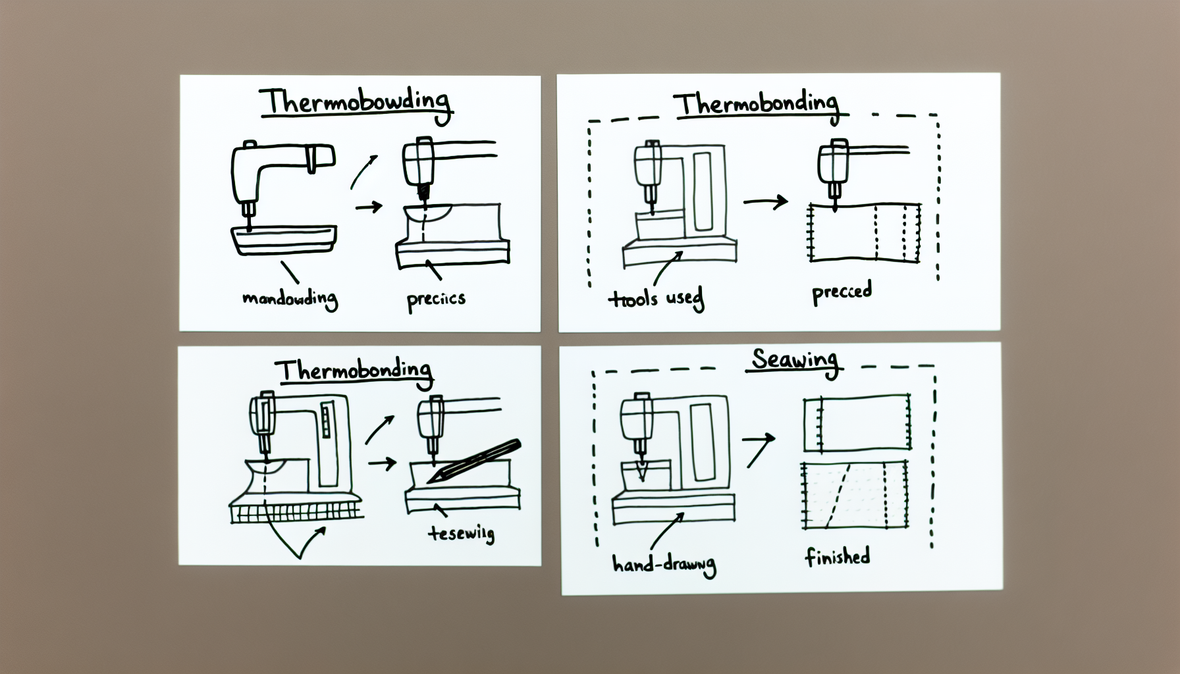 Thermobowding
mandowding
preciics
Thermobonding
tools used
precced
Thermobonding
tesewilg
Seawing
hand-drawng
finished